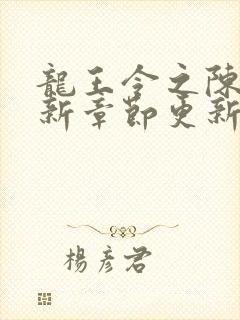 龍王令之陳
新章節更新
楊彥君